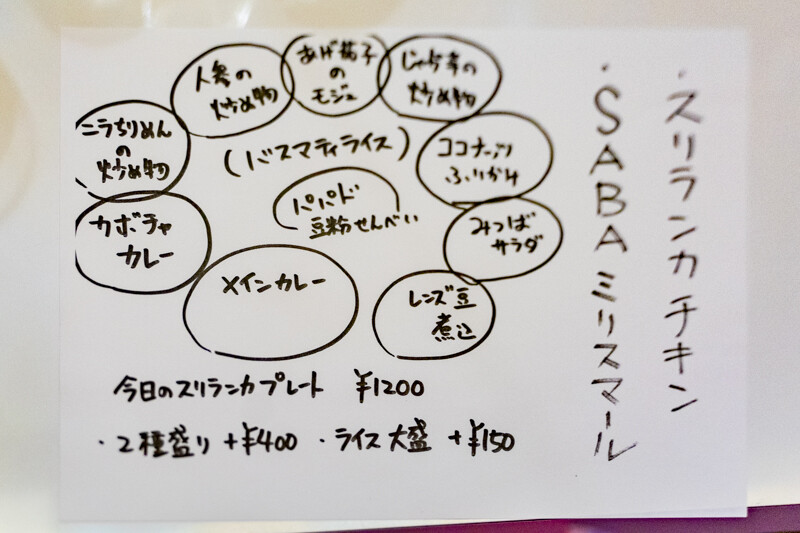 ・スリランカチキン
・SABAミリスマール
人参の
炒め物
あげ茄子
の
モジュ
じゃが芋の
炒め物
ニラちりめん
の
炒め物
(バスマティライス)
ココナッツ
ふりかけ
パパド
豆粉せんべい
カボチャ
カレー
みつば
サラダ
メインカレー
レンズ豆
煮込
今日のスリランカプレート ¥1200
・2種盛り +¥400 ・ライス大盛 +¥150